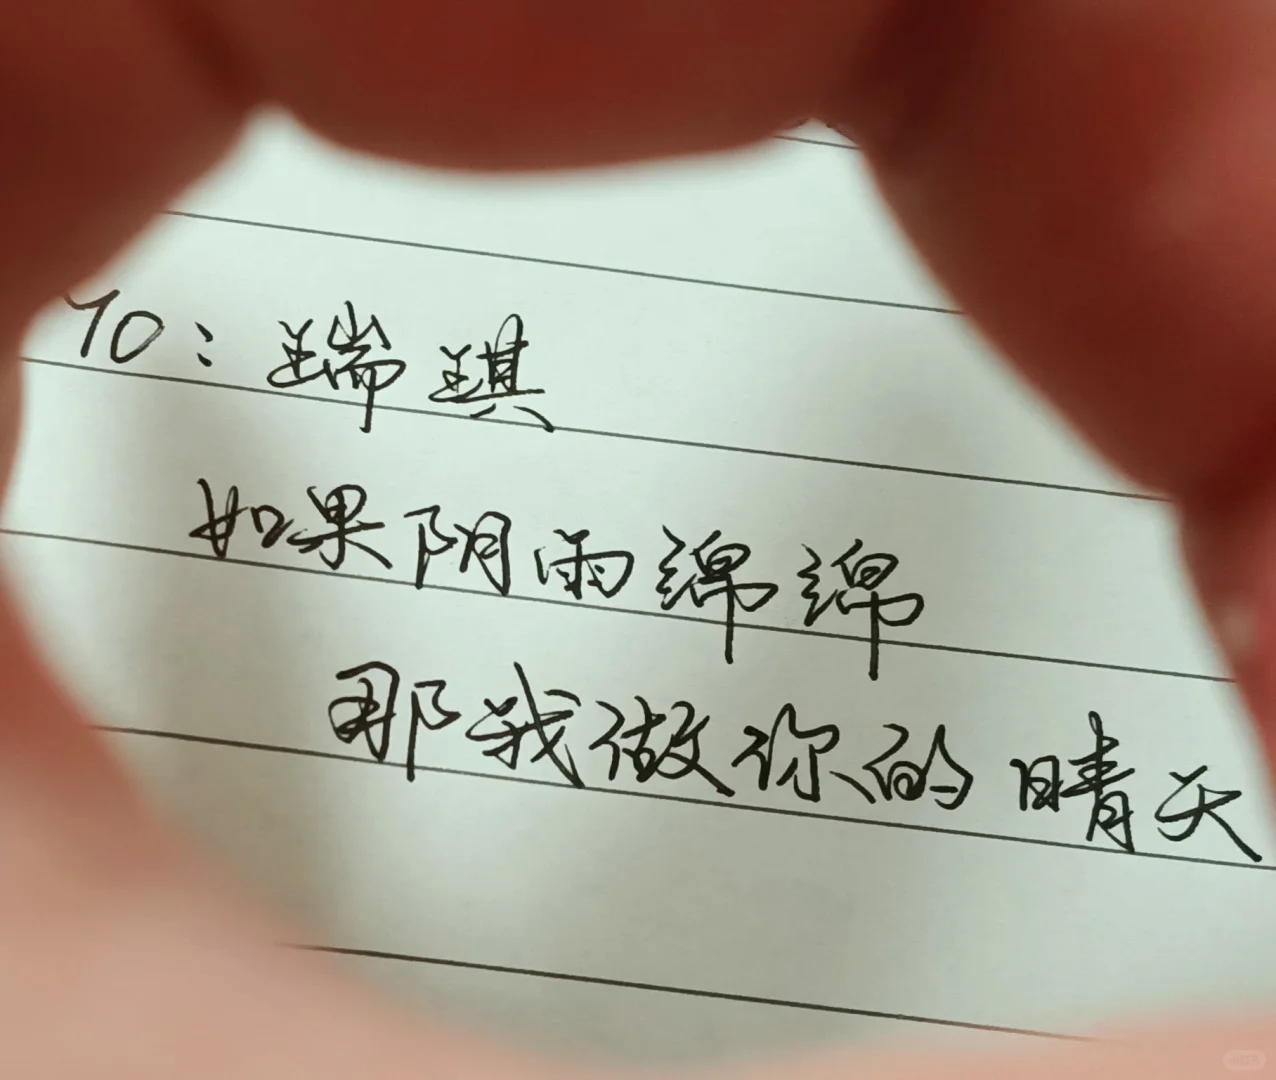 TO：瑞琪
如果阴雨绵绵
那我做你的晴天